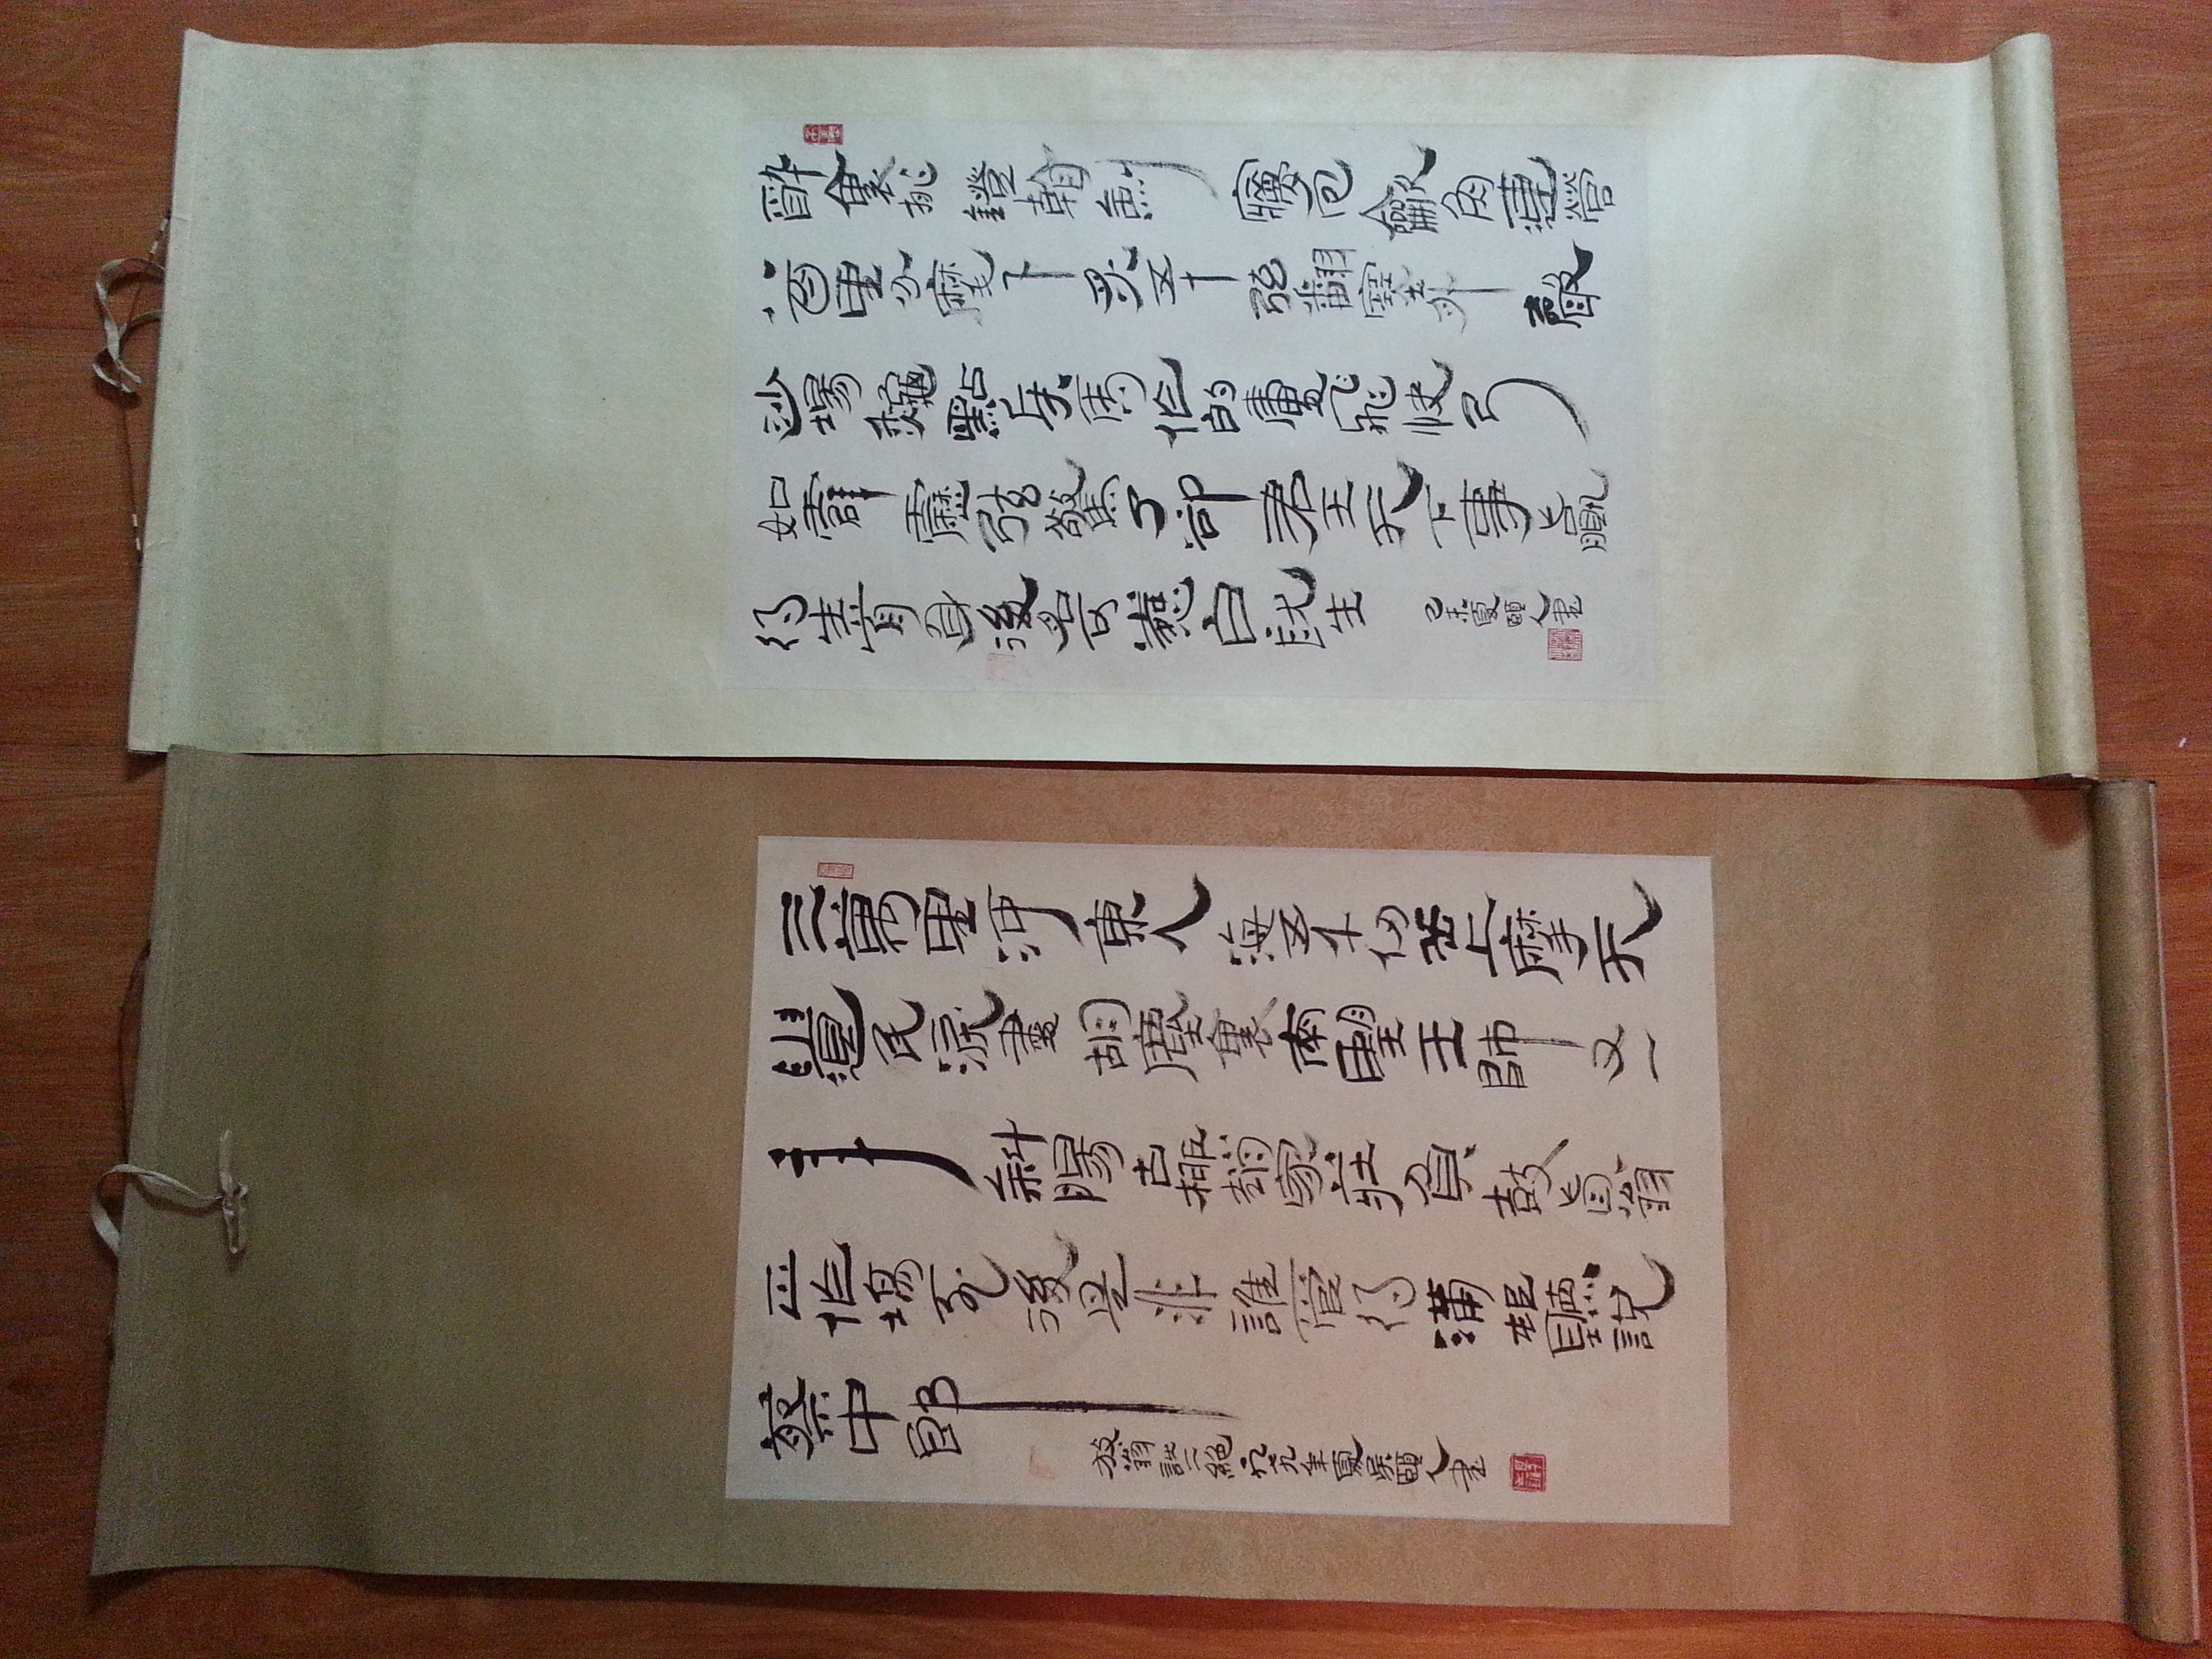 醉裏挑鐙看劍夢回龡角連營
八百里分麾下炙五十弦翻塞外聲
沙場秋點兵馬作的盧飛快弓
如霹靂弦驚了卻君王天下事贏
得生前身後名可憐白髮生
己卯夏頤人書
三萬里河東入海五千仞岳上摩天
遺民淚盡胡塵裏南望王師又一
年斜陽古柳趙家莊負鼓盲翁
正作場死後是非誰管得滿村聽說
蔡中郎
放翁詩二絕九九年夏吳頤人書